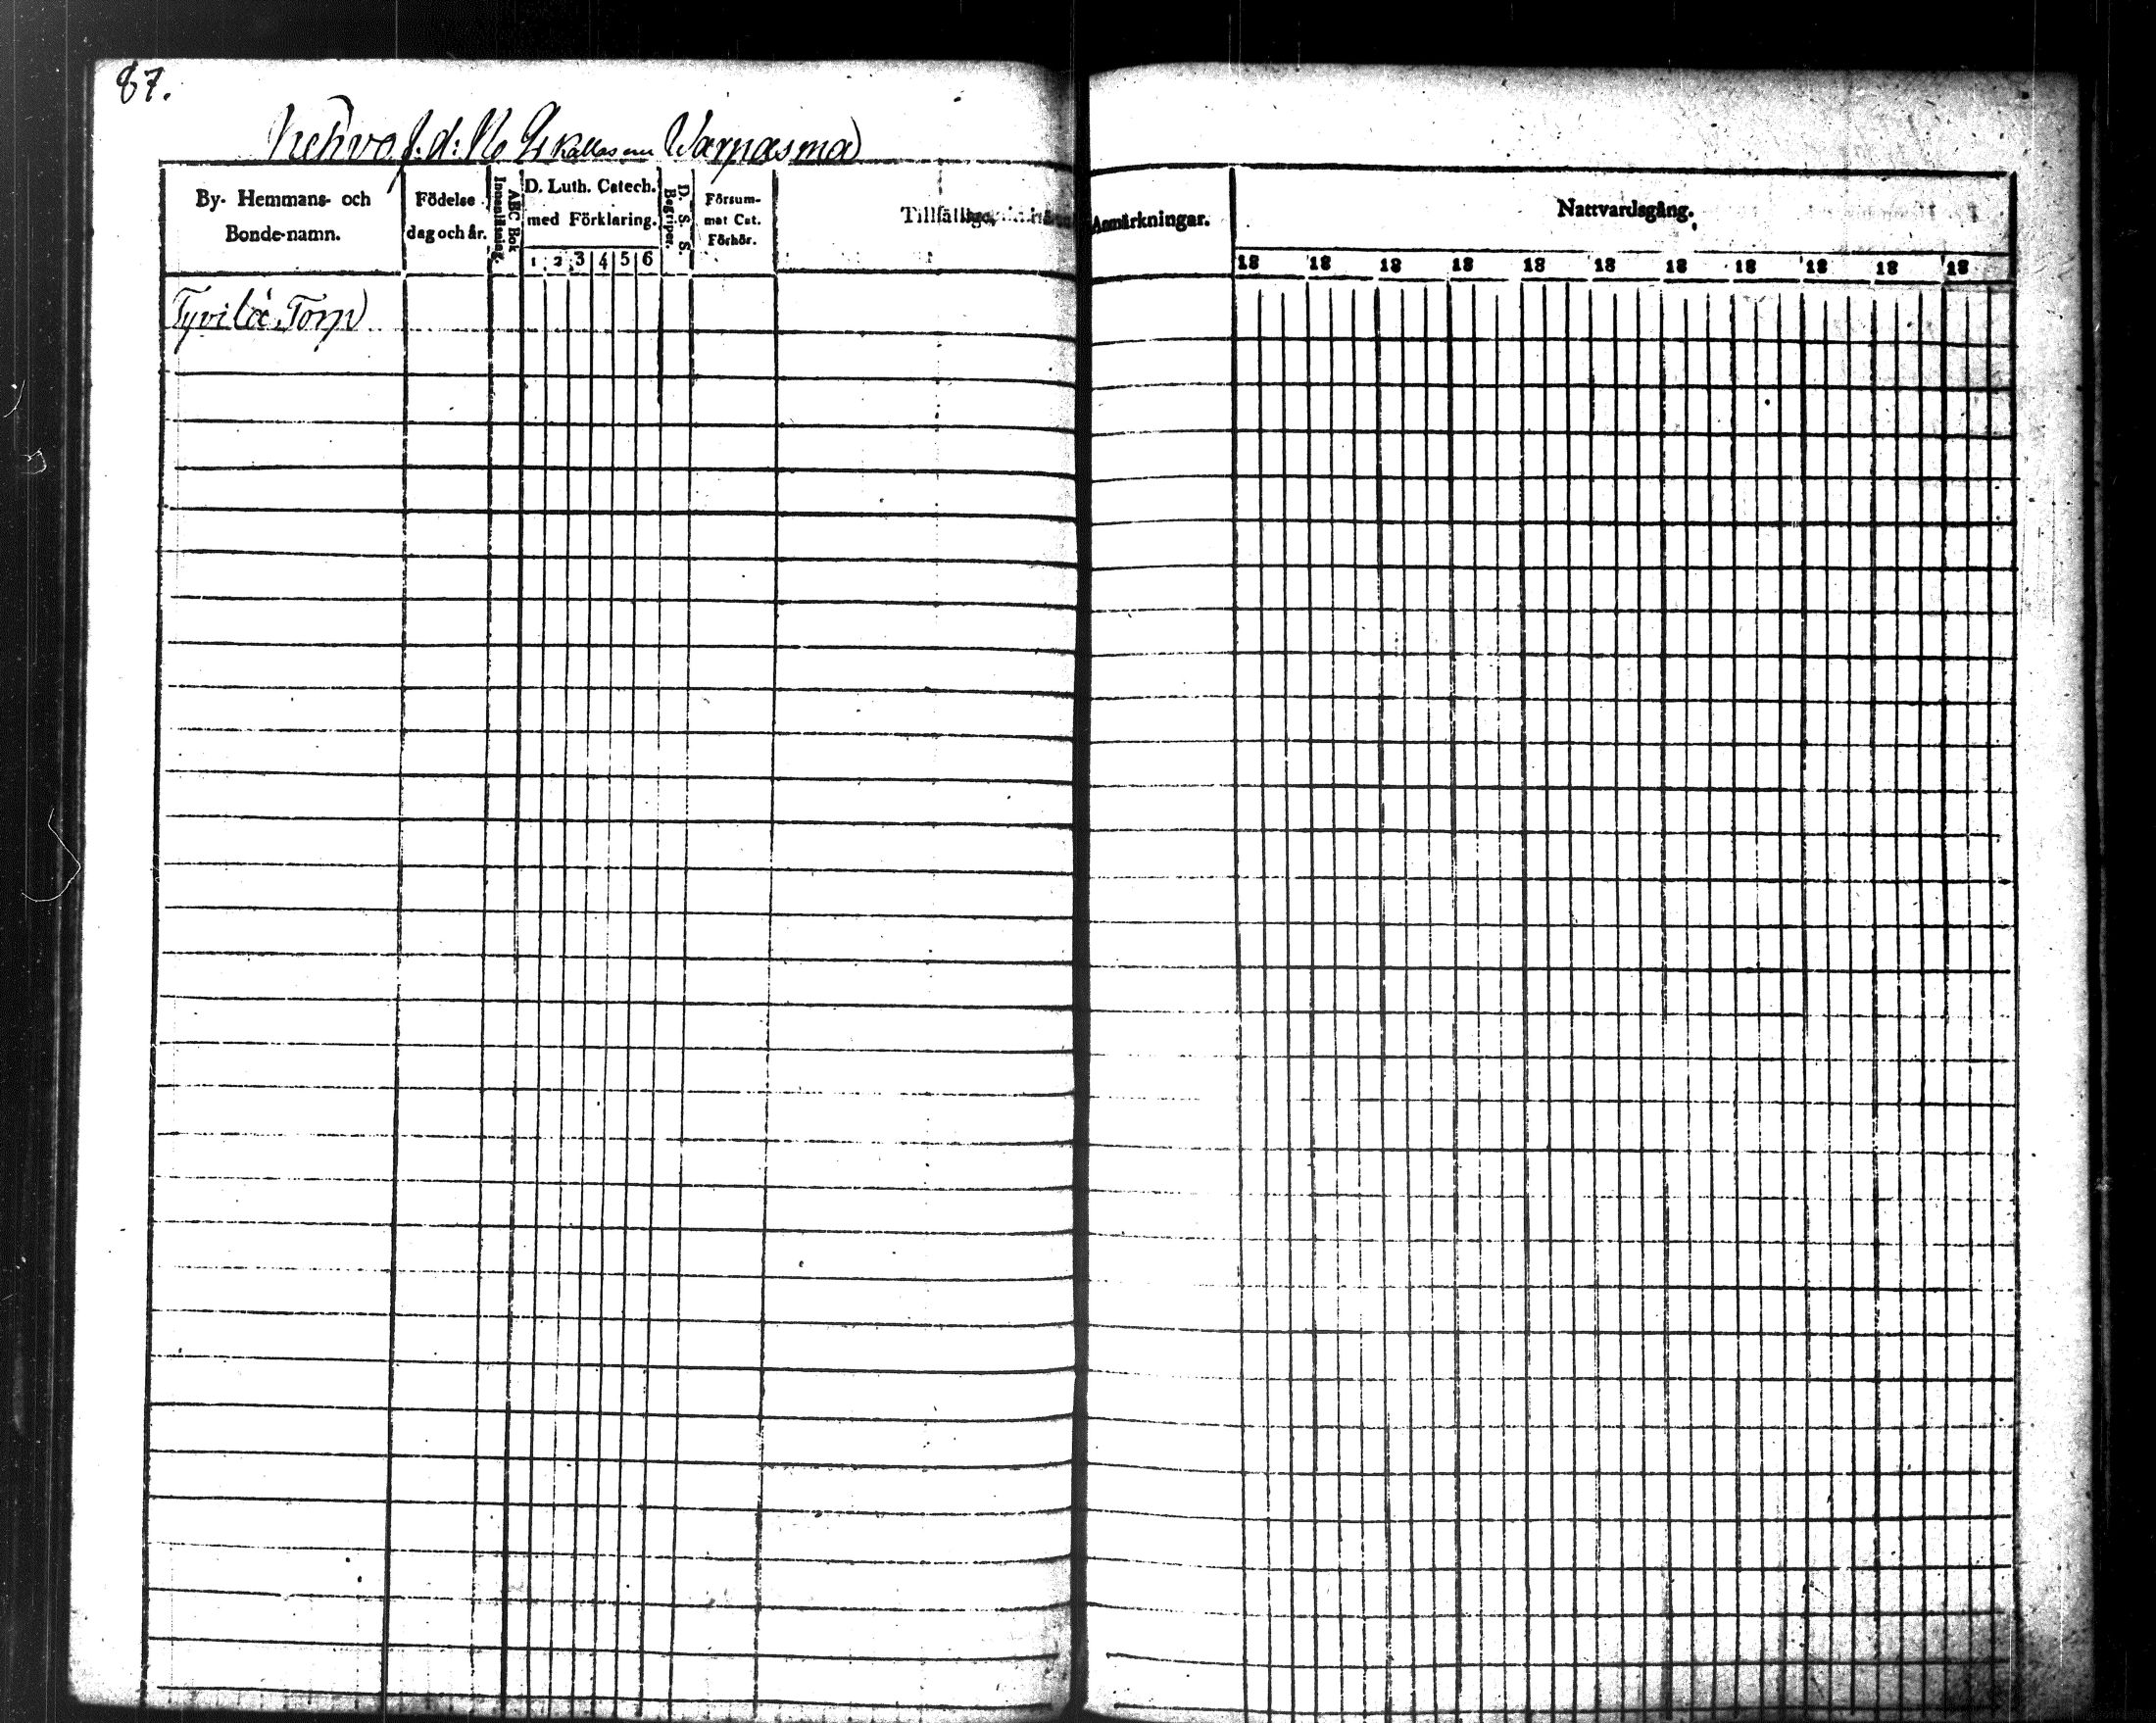 87.
Kehvo f. d. N. 4 kallas nu Varpasma
By- Hemmans- och
Bonde-namn.
Födelse
dag och år.
ABC Bok
Innanläsning.
D. Luth. Catech.
med Förklaring.
1 2 3 4 5 6
D. S. S.
Begriper.
Försum-
mat Cat.
Förhör.
Tillfällige
Anmärkningar.
Nattvardsgång.
18 18 18 18 18 18 18 18 18 18 18
Tyvilä Torp